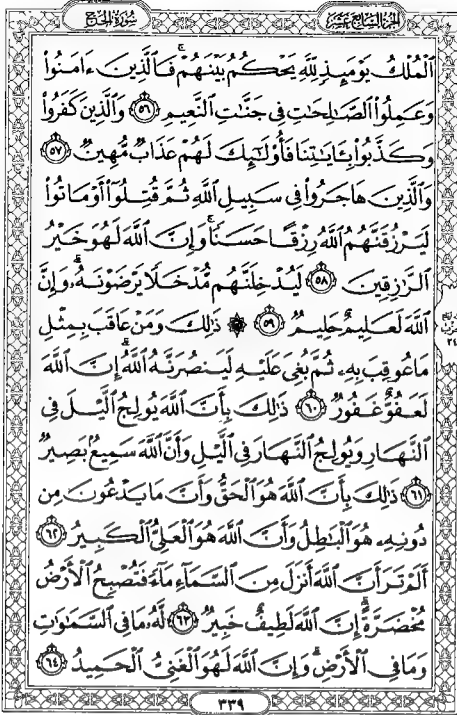 الجزء السابع عشر
سورة الحج
ٱلْمُلْكُ يَوْمَئِذٍ لِّلَّهِ يَحْكُمُ بَيْنَهُمْ ۚ فَٱلَّذِينَ ءَامَنُوا۟
وَعَمِلُوا۟ ٱلصَّٰلِحَٰتِ فِى جَنَّٰتِ ٱلنَّعِيمِ ٥٦ وَٱلَّذِينَ كَفَرُوا۟
وَكَذَّبُوا۟ بِـَٔايَٰتِنَا فَأُو۟لَٰٓئِكَ لَهُمْ عَذَابٌ مُّهِينٌ ٥٧
وَٱلَّذِينَ هَاجَرُوا۟ فِى سَبِيلِ ٱللَّهِ ثُمَّ قُتِلُوٓا۟ أَوْ مَاتُوا۟
لَيَرْزُقَنَّهُمُ ٱللَّهُ رِزْقًا حَسَنًا ۚ وَإِنَّ ٱللَّهَ لَهُوَ خَيْرُ
ٱلرَّٰزِقِينَ ٥٨ لَيُدْخِلَنَّهُم مُّدْخَلًا يَرْضَوْنَهُۥ ۗ وَإِنَّ
ٱللَّهَ لَعَلِيمٌ حَلِيمٌ ٥٩ ۞ ذَٰلِكَ وَمَنْ عَاقَبَ بِمِثْلِ
مَا عُوقِبَ بِهِۦ ثُمَّ بُغِىَ عَلَيْهِ لَيَنصُرَنَّهُ ٱللَّهُ ۗ إِنَّ ٱللَّهَ
لَعَفُوٌّ غَفُورٌ ٦٠ ذَٰلِكَ بِأَنَّ ٱللَّهَ يُولِجُ ٱلَّيْلَ فِى
ٱلنَّهَارِ وَيُولِجُ ٱلنَّهَارَ فِى ٱلَّيْلِ وَأَنَّ ٱللَّهَ سَمِيعٌۢ بَصِيرٌ
٦١ ذَٰلِكَ بِأَنَّ ٱللَّهَ هُوَ ٱلْحَقُّ وَأَنَّ مَا يَدْعُونَ مِن
دُونِهِۦ هُوَ ٱلْبَٰطِلُ وَأَنَّ ٱللَّهَ هُوَ ٱلْعَلِىُّ ٱلْكَبِيرُ ٦٢
أَلَمْ تَرَ أَنَّ ٱللَّهَ أَنزَلَ مِنَ ٱلسَّمَآءِ مَآءً فَتُصْبِحُ ٱلْأَرْضُ
مُخْضَرَّةً ۗ إِنَّ ٱللَّهَ لَطِيفٌ خَبِيرٌ ٦٣ لَّهُۥ مَا فِى ٱلسَّمَٰوَٰتِ
وَمَا فِى ٱلْأَرْضِ ۗ وَإِنَّ ٱللَّهَ لَهُوَ ٱلْغَنِىُّ ٱلْحَمِيدُ ٦٤
٣٣٩